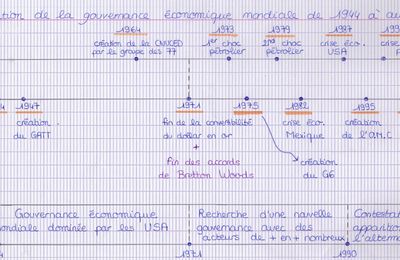 tion de la gouvernance économique mondiale de 1944 à au
1964
1973
1979
1987
199
création de la CNUCED
par le groupe des 77
1er choc
pétrolier
2nd choc
pétrolier
crise éco.
USA
crise
1947
1971
1975
1982
1995
création
du GATT
fin de la convertibilité
du dollar en or
+
fin des accords
de Bretton Woods
crise éco.
Mexique
création
de l'O.M.C
création
du G6
Gouvernance économique
mondiale dominée par les USA
Recherche d'une nouvelle
gouvernance avec des
acteurs de + en + nombreux
Contestat
apparition
l'alterm
1971
1990